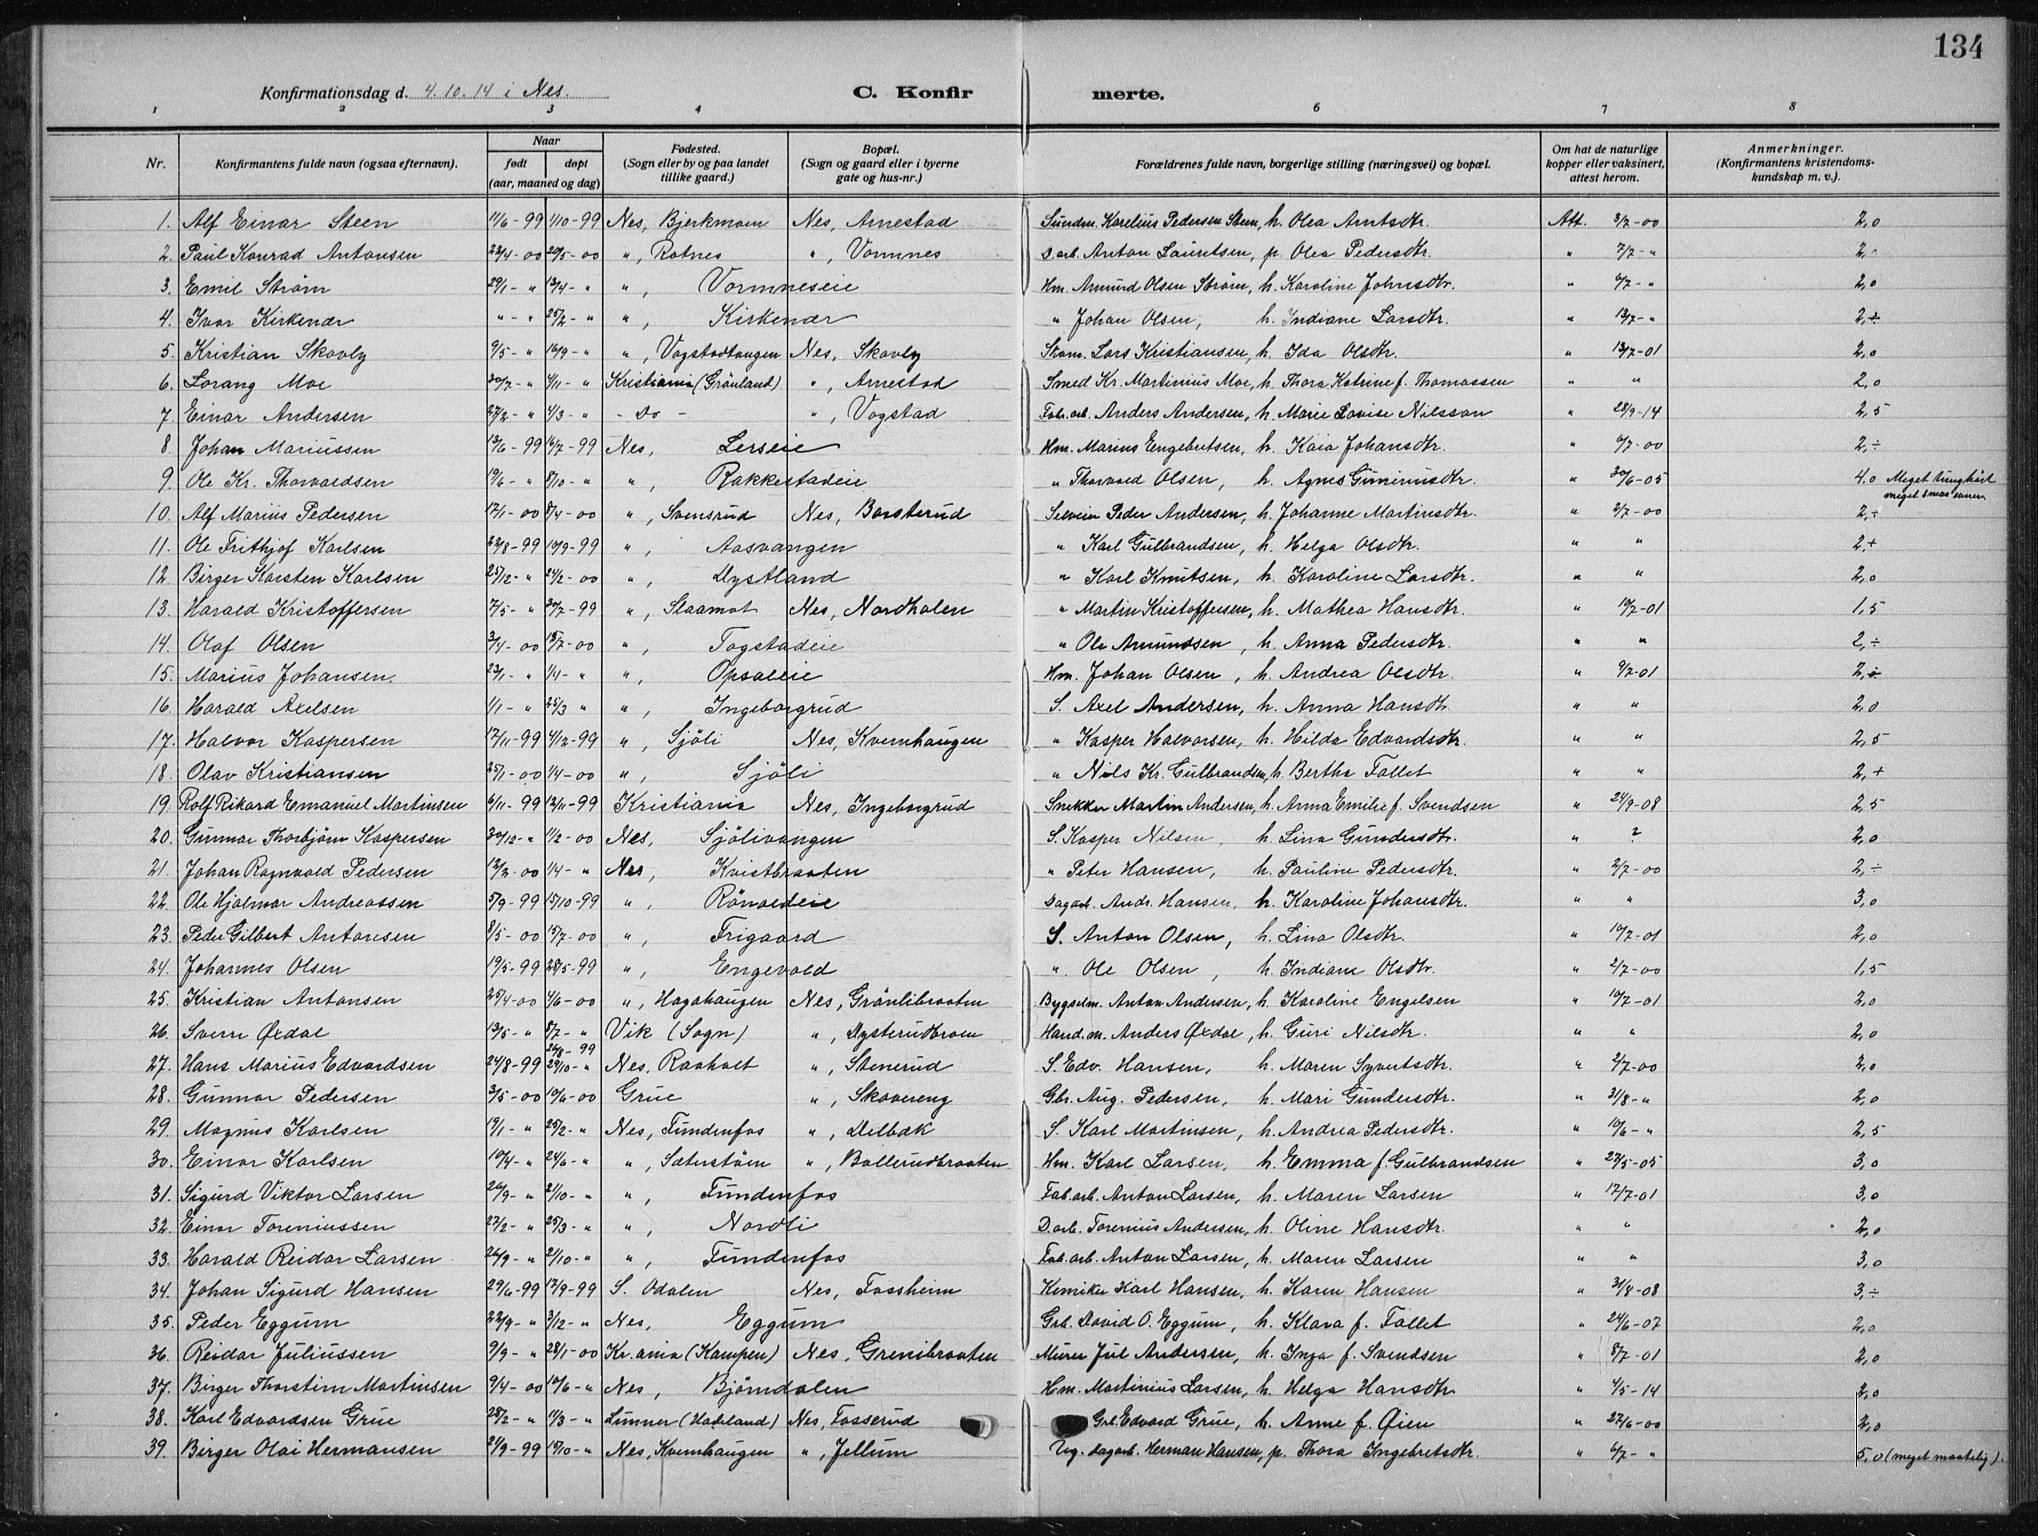 134
Konfirmationsdag d. 4.10.14 i Nes. C. Konfir merte.
1 2 3 4 6 7 8
Nr. Konfirmantens fulde navn (ogsaa efternavn). Naar født døpt (aar, maaned og dag) Fødested. (Sogn eller by og paa landet tillike gaard.) Bopæl. (Sogn og gaard eller i byerne gate og hus-nr.) Forældrenes fulde navn, borgerlige stilling (næringsvei) og bopæl. Om hat de naturlige kopper eller vaksinert, attest herom. Anmerkninger. (Konfirmantens kristendoms-kundskap m. v.).
1. Alf Einar Steen 11/6-99 1/10-99 Nes, Bjerkmoen Nes, Arnestad Sundm. Karelius Pedersen Steen, h. Olea Arntsdtr. Att. 3/7-00 2,0
2. Paul Konrad Antonsen 22/4-00 20/5-00 ", Rotnes ", Vormnes D.arb. Anton Lauritsen, p. Olea Pedersdtr. " 7/7-" 2,0
3. Emil Strøm 29/1-" 13/4-" ", Vormneseie Hm. Amund Olsen Strøm, h. Karoline Johnsdtr. " 6/7-" 2,0
4. Ivar Kirkenær "-" 25/2-" ", Kirkenær " Johan Olsen, h. Indiane Larsdtr. " 13/7-" 2,÷
5. Kristian Skovly 9/5-" 16/9-" ", Vogstadtangen Nes, Skovly Stom. Lars Kristiansen, h. Ida Olsdtr. " 13/7-01 2,0
6. Lorang Moe 30/7-" 4/11-" Kristiania (Grönland) ", Arnestad Smed Kr. Martinius Moe, h. Thora Katrine f. Thomassen " " 2,0
7. Einar Andersen 27/2-" 4/3-" - Do - ", Vogstad Fabr.arb. Anders Andersen, h. Marie Lovise Nilsson " 28/9-14 2,5
8. Johan Mariussen 13/6-99 16/7-99 Nes, Lerseie Hm. Marius Engebretsen, h. Kaia Johansdtr. " 6/7-00 2,÷
9. Ole Kr. Thorvaldsen 19/6-" 8/10-" ", Rakkestadeie " Thorvald Olsen, h. Agnes Guneriusdtr. " 30/6-05 4,0 Meget tunghørt meget smaa evner
10. Alf Marius Pedersen 17/1-00 8/4-00 ", Svensrud Nes, Borsterud Selveier Peder Andersen, h. Johanne Martinsdtr. " 2/7-00 2,÷
11. Ole Frithjof Karlsen 22/8-99 10/9-99 ", Aasvangen " Karl Gulbrandsen, h. Helga Olsdtr. " " 2,+
12. Birger Karsten Karlsen 25/12-" 24/2-00 ", Dystland " Karl Knutsen, h. Karoline Larsdtr. " " 2,0
13. Harald Kristoffersen 7/5-" 30/7-99 ", Slaamot Nes, Nordhalen " Martin Kristoffersen, h. Mathea Hansdtr. " 10/7-01 1,5
14. Olaf Olsen 3/4-00 15/7-00 ", Togstadeie " Ole Amundsen, h. Anna Pedersdtr. " " 2,÷
15. Marius Johansen. 23/1-" 1/4-" ", Opsaleie Hm. Johan Olsen, h. Andrea Olsdtr. " 9/7-01 2,÷
16. Harald Axelsen 1/1-" 25/3 " ", Ingeborgrud S. Axel Andersen, h. Anna Hansdtr " " 2,0
17. Halvor Kaspersen 17/11-99 4/12-99 ", Sjöli Nes, Kvernhaugen " Kasper Halvorsen, h. Hilda Edvardsdtr. " " 2,5
18. Olav Kristiansen 25/1-00 1/4-00 ", Sjöli " Nils Kr. Gulbrandsen, h. Berthe Fallet " " 2,+
19. Rolf Rikard Emanuel Martinsen 6/11-99 12/11-99 Kristiania Nes, Ingeborgrud Snekker Martin Andersen, h. Anna Emilie f. Svendsen " 24/9-08 2,5
20. Gunnar Thorbjørn Kaspersen 30/12-" 1/2-00 Nes, Sjölivangen S. Kasper Nilsen, h. Lina Gundersdtr. " ? 2,0
21. Johan Ragnvald Pedersen 12/2-00 1/4-" Nes, Kvistbraaten " Peter Hansen, h. Pauline Pedersdtr. " 2/7-00 2,÷
22. Ole Hjalmar Andreassen 5/9-99 15/10-99 ", Rönaldeie Dagarb. Andr. Hansen, h. Karoline Johansdtr. " " 3,0
23. Peder Gilbert Antonsen 8/5-00 15/7-00 ", Frigaard S. Anton Olsen, h. Lina Olsdtr. " 10/7-01 2,0
24. Johannes Olsen 19/5-99 28/5-99 ", Engevold " Ole Olsen, h. Indiane Olsdtr. " 2/7-00 1,5
25. Kristian Antonsen 25/4-00 4/6-00 ", Hagahaugen Nes, Grönlibraaten Bygselm. Anton Andersen, h. Karoline Engelsen " 10/7-01 2,0
26. Sverre Øxdal 13/5-" 8/7-" Vik (Sogn) ", Dysterudbroen Hand.m. Anders Øxdal, h. Guri Nilsdtr. " " 2,0
27. Hans Marius Edvardsen 24/8-99 26/8-99 29/10-" Nes, Raaholt ", Stenerud S. Edv. Hansen, h. Maren Syvertsdtr. " 2/7-00 2,0
28. Gunnar Pedersen 3/5-00 10/6-00 Grue ", Skovereng Gbr. Aug. Pedersen, h. Mari Gundersdtr. " 31/8-" 2,0
29. Magnus Karlsen 19/1-" 25/2-" Nes, Fundenfos ", Delbæk S. Karl Martinsen, h. Andrea Pedersdtr. " 10/6-" 2,5
30. Einar Karlsen 10/4-" 24/6-" ", Sæterstøen ", Ballerudbraaten Hm. Karl Larsen, h. Emma f. Gulbrandsen " 27/5-05 3,0
31. Sigurd Viktor Larsen 26/9-" 21/10-" ", Fundenfos Fab.arb. Anton Larsen, h. Maren Larsen " 17/7-01 3,0
32. Einar Toreniussen 27/2-" 25/3-" ", Nordli D.arb. Torenius Andersen, h. Oline Hansdtr. " " 2,0
33. Harald Reidar Larsen 26/9-" 21/10-" ", Fundenfos Fab.arb. Anton Larsen, h. Maren Larsen " " 3,0
34. Johan Sigurd Hansen 29/6-99 17/9-99 S. Odalen Nes, Fossheim Kemiker Karl Hansen, h. Karen Hansen " 31/8-08 3,÷
35. Peder Eggum 22/9-" 3/12-" Nes, Eggum Grb. David O. Eggum, h. Klara f. Fallet " 24/6-07 2,0
36. Reidar Juliussen 9/9-" 28/1-00 Kr.ania (Kampen) Nes, Grenibraaten Murer Jul Andersen, h. Inga f. Svendsen " 8/7-01 2,0
37. Birger Thorstein Martinsen 9/4-00 10/6-" Nes, Björndalen Hm. Martinius Larsen, h. Helga Hansdtr " 4/5-14 2,0
38. Karl Edvardsen Grue 28/2-" 11/3-" Lunner (Hadeland) Nes, Fosserud Grb. Edvard Grue, h. Anne f. Øien " 27/6-00 2,0
39. Birger Olai Hermansen 21/9-99 15/10-" Nes, Kvernhaugen ", Jellum Ug. dagarb. Herman Hansen, p. Thora Ingebretsdtr. " 6/7-" 5,0 (meget maatelig).